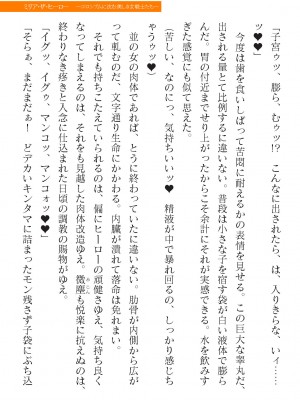 「子宮ゥッ、膨ら、むゥッ!? こんなに出されたら、は、入りきらな、いィ…
ッ♥♥」
今度は歯を食いしばって苦悶に耐えるかの表情を見せる。この巨大な睾丸だ、
出される量とて比例するに違いない。普段は小さな子を宿す袋が白い液体で膨ら
んだ。胃の付近までせり上がったからこそ余計にそれが実感できる。水を飲みす
ぎた感覚にも似て思えた。
(苦しい、なのにっ、気持ちいいッ♥ 精液が中で暴れ回るの、しっかり感じち
ゃうゥッ♥)
並の女の肉体であれば、とうに終わっていたに違いない。肋骨が内側から広が
って軋むのだ、文字通り生命にかかわる。内臓が潰れて落命は免れまい。
それでも持ちこたえていられるのは、偏にヒーローの頑健さゆえ、気持ち良く
なってしまえるのは、それをも見越した肉体改造ゆえ。微塵も悦楽に抗えぬのは、
終わりなき疼きと入念に仕込まれた日頃の調教の賜物がゆえ。
「イグッ、イグゥ、マンコッ、マンコォッ♥♥」
「そらぁ、まだまだぁ! どデカいキンタマに詰まったモン残さず子袋にぶち込